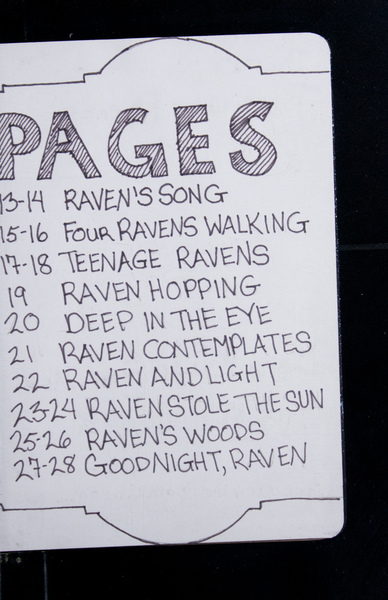 PAGES
13-14 RAVEN'S SONG
15-16 FOUR RAVENS WALKING
17-18 TEENAGE RAVENS
19 RAVEN HOPPING
20 DEEP IN THE EYE
21 RAVEN CONTEMPLATES
22 RAVEN AND LIGHT
23-24 RAVEN STOLE THE SUN
25-26 RAVEN'S WOODS
27-28 GOODNIGHT, RAVEN